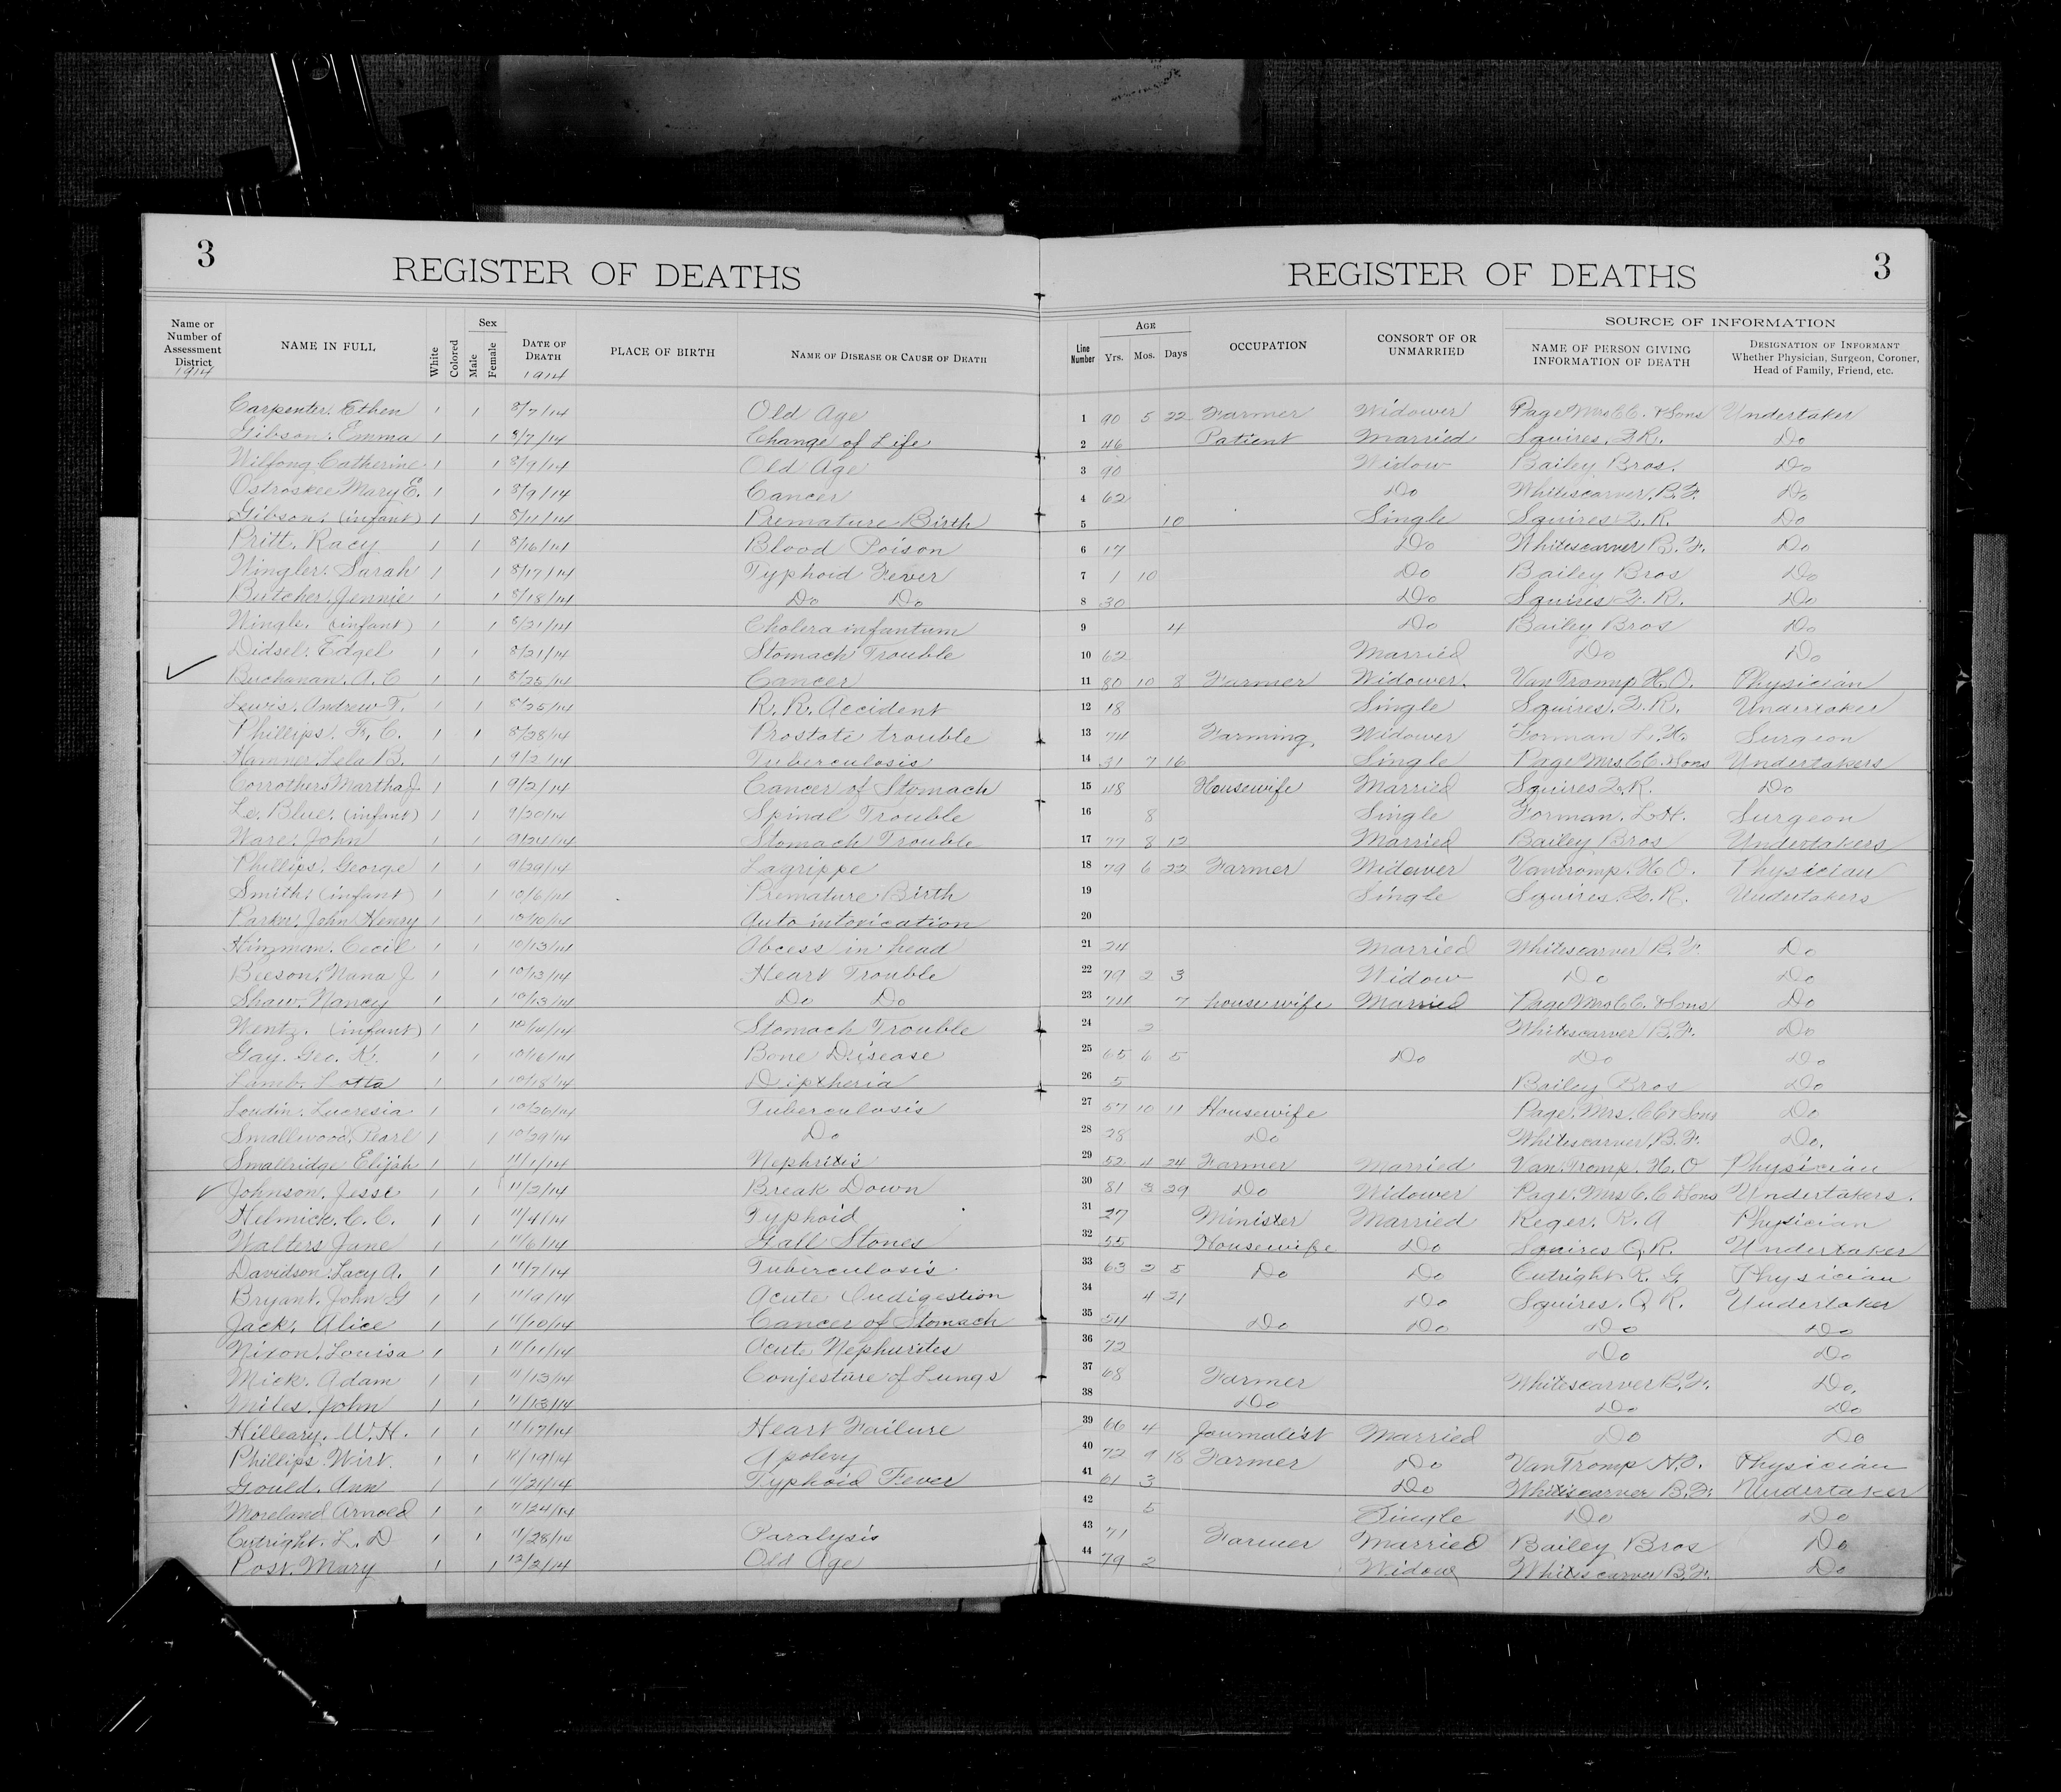 3
REGISTER OF DEATHS
Name or Number of Assessment District 1914 | NAME IN FULL | White | Colored | Sex Male | Female | DATE OF DEATH 1914 | PLACE OF BIRTH | NAME OF DISEASE OR CAUSE OF DEATH
Carpenter. Ethen 1 1 8/7/14 Old Age
Gibson. Emma 1 1 8/7/14 Change of Life
Wilfong Catherine 1 1 8/9/14 Old Age
Ostroskee Mary E. 1 1 8/9/14 Cancer
Gibson. (infant) 1 1 8/11/14 Premature Birth
Pritt. Racy 1 1 8/16/14 Blood Poison
Wingler. Sarah 1 1 8/17/14 Typhoid Fever
Butcher. Jennie 1 1 8/18/14 Do Do
Wingle. (infant) 1 1 8/21/14 Cholera infantum
Didsel. Edgel 1 1 8/21/14 Stomach Trouble
Buchanan. A. C 1 1 8/25/14 Cancer
Lewis. Andrew T. 1 1 8/25/14 R. R. Accident
Phillips. F. C. 1 1 8/28/14 Prostate trouble
Hamner. Lela B. 1 1 9/2/14 Tuberculosis
Corrothers Martha J 1 1 9/2/14 Cancer of Stomach
Le. Blue. (infant) 1 1 9/20/14 Spinal Trouble
Ware. John 1 1 9/24/14 Stomach Trouble
Phillips. George 1 1 9/29/14 Lagrippe
Smith. (infant) 1 1 10/6/14 Premature Birth
Parker. John Henry 1 1 10/10/14 Auto intoxication
Hinzman. Cecil 1 1 10/13/14 Abcess in head
Beeson. Nana J 1 1 10/13/14 Heart Trouble
Shaw. Nancy 1 1 10/13/14 Do Do
Wentz. (infant) 1 1 10/14/14 Stomach Trouble
Gay. Geo. K. 1 1 10/16/14 Bone Disease
Lamb. Lotta 1 1 10/18/14 Diptheria
Loudin. Lucresia 1 1 10/26/14 Tuberculosis
Smallwood. Pearl 1 1 10/29/14 Do
Smallridge Elijah 1 1 11/1/14 Nephritis
Johnson. Jesse 1 1 11/2/14 Break Down
Helmick. C. C. 1 1 11/4/14 Typhoid
Walters Jane 1 1 11/6/14 Gall Stones
Davidson. Lacy A. 1 1 11/7/14 Tuberculosis.
Bryant. John G 1 1 11/9/14 Acute Indigestion
Jack. Alice 1 1 11/10/14 Cancer of Stomach
Nixon. Louisa 1 1 11/11/14 Acute Nephurites
Mick. Adam 1 1 11/13/14 Conjesture of Lungs
Miles. John 1 1 11/13/14
Hilleary. W. H. 1 1 11/17/14 Heart Failure
Phillips. Wirt. 1 1 11/19/14 Apolexy
Gould. Ann 1 1 11/21/14 Typhoid Fever
Moreland Arnold 1 1 11/24/14
Cutright. L. D 1 1 11/28/14 Paralysis
Post. Mary 1 1 12/2/14 Old Age
3
REGISTER OF DEATHS
Line Number | AGE Yrs. | Mos. | Days | OCCUPATION | CONSORT OF OR UNMARRIED | SOURCE OF INFORMATION | NAME OF PERSON GIVING INFORMATION OF DEATH | DESIGNATION OF INFORMANT Whether Physician, Surgeon, Coroner, Head of Family, Friend, etc.
1 90 5 22 Farmer Widower Page Mrs C C. & Sons Undertaker
2 46 Patient Married Squires. Q R. Do
3 90 Widow Bailey Bros. Do
4 62 Do Whitescarver. B. F. Do
5 10 Single Squires Q. R. Do
6 17 Do Whitescarver B. F. Do
7 1 10 Do Bailey Bros Do
8 30 Do Squires Q. R. Do
9 4 Do Bailey Bros Do
10 62 Married Do Do
11 80 10 8 Farmer Widower. Van Tromp H. O. Physician
12 18 Single Squires. Q. R. Undertaker
13 74 Farming Widower Forman L. H. Surgeon
14 31 7 16 Single Page Mrs C C. & Sons Undertakers
15 48 Housewife Married Squires Q. R. Do
16 8 Single Forman. L. H. Surgeon
17 77 8 12 Married Bailey Bros Undertakers
18 79 6 22 Farmer Widower Vantromp. H. O. Physician
19 Single Squires. Q. R. Undertakers
20
21 24 Married Whitescarver B. F. Do
22 79 2 3 Widow Do Do
23 74 7 housewife Married Page Mrs C C. & Sons Do
24 2 Whitescarver B. F. Do
25 65 6 5 Do Do Do
26 5 Bailey Bros Do
27 57 10 11 Housewife Page. Mrs. C C & Sons Do
28 28 Do Whitescarver. B. F. Do.
29 52 4 24 Farmer Married Van Tromp. H. O Physician
30 81 3 29 Do Widower Page. Mrs C. C & Sons Undertakers.
31 27 Minister Married Reger. R. A Physician
32 55 Housewife Do Squires Q R. Undertaker
33 63 2 5 Do Do Cutright. K. G. Physician
34 4 21 Do Squires. Q R. Undertaker
35 54 Do Do Do Do
36 72 Do Do
37 68 Farmer Whitescarver B. F. Do.
38 Do Do Do
39 66 4 Journalist Married Do Do
40 72 9 18 Farmer Do Van Tromp H. O. Physician
41 61 3 Do Whitescarver B. F. Undertaker
42 5 Single Do Do
43 71 Farmer Married Bailey Bros Do
44 79 2 Widow Whitescarver B. F. Do